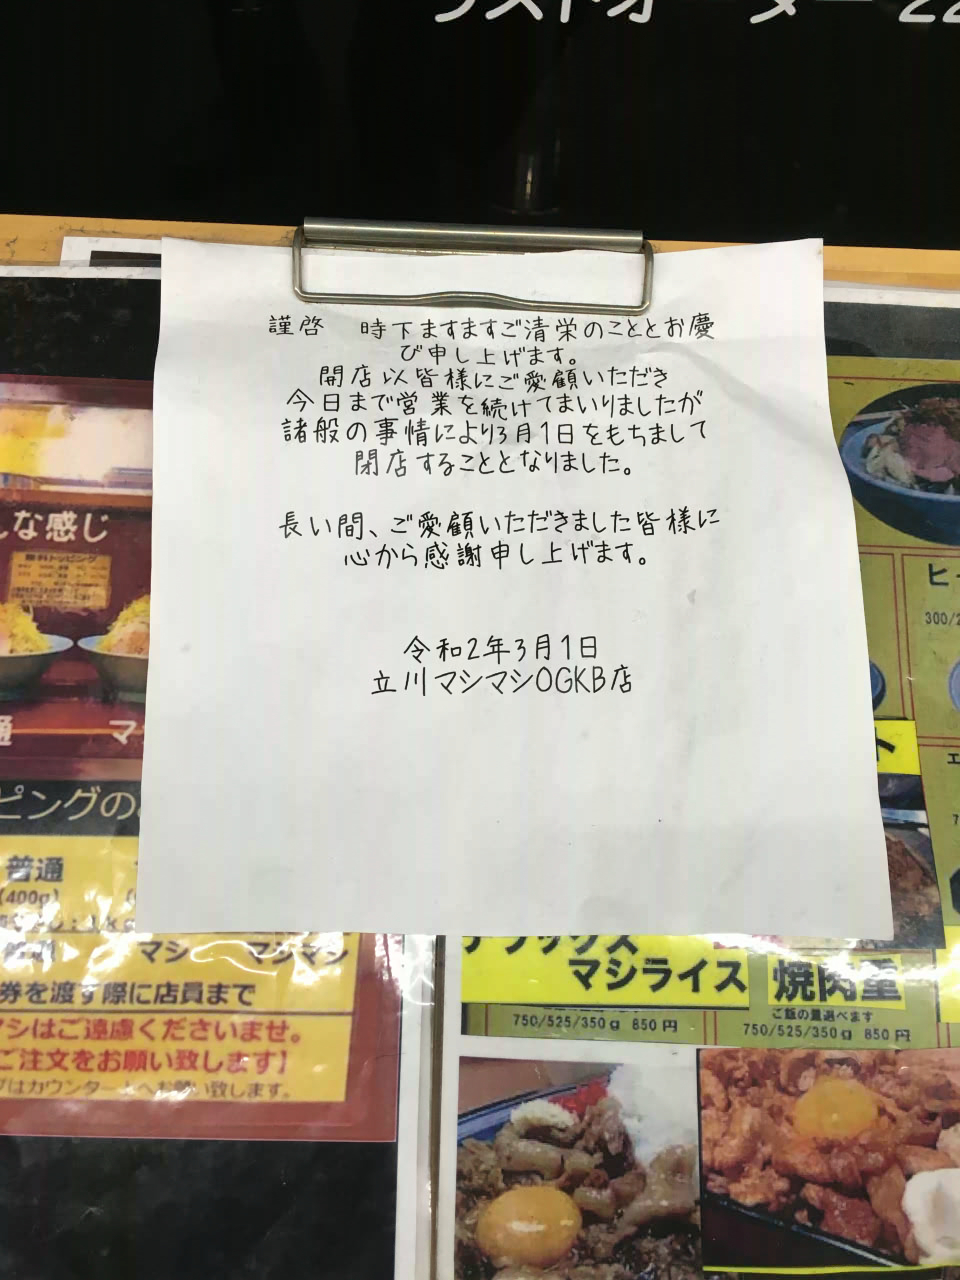 ラストオーダー 22
謹啓　時下ますますご清栄のこととお慶
び申し上げます。
開店以皆様にご愛顧いただき
今日まで営業を続けてまいりましたが
諸般の事情により3月1日をもちまして
閉店することとなりました。
長い間、ご愛顧いただきました皆様に
心から感謝申し上げます。
令和2年3月1日
立川マシマシOGKB店
な感じ
無料トッピング
通
マ
ピングの
普通
(400g)
マシ
マシマシ
券を渡す際に店員まで
マシはご遠慮くださいませ。
ご注文をお願い致します】
ヒ
300/2
ト
マシライス
750/525/350g 850円
焼肉重
ご飯の量選べます
750/525/350g 850円